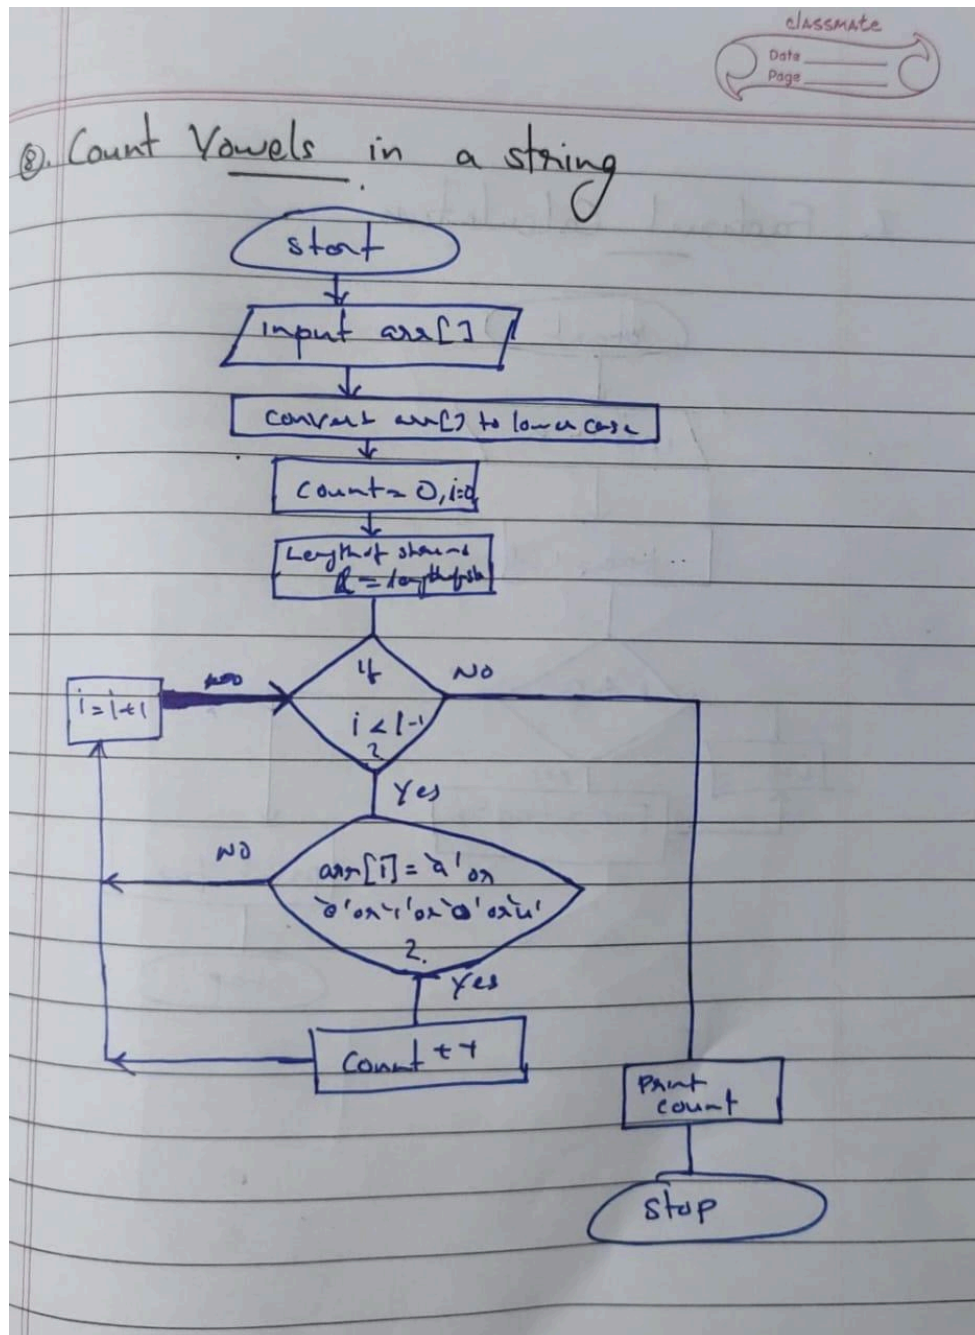 classmate
Date
Page
8. Count Vowels in a string
start
input arr[]
convert arr[] to lower case
count = 0, i=0
Length of
l = length of str
i = i+1
if
i < l-1
?
NO
Yes
NO
arr[i] = 'a' or
'e' or 'i' or 'o' or 'u'
?
Yes
Count ++
Print
count
stop